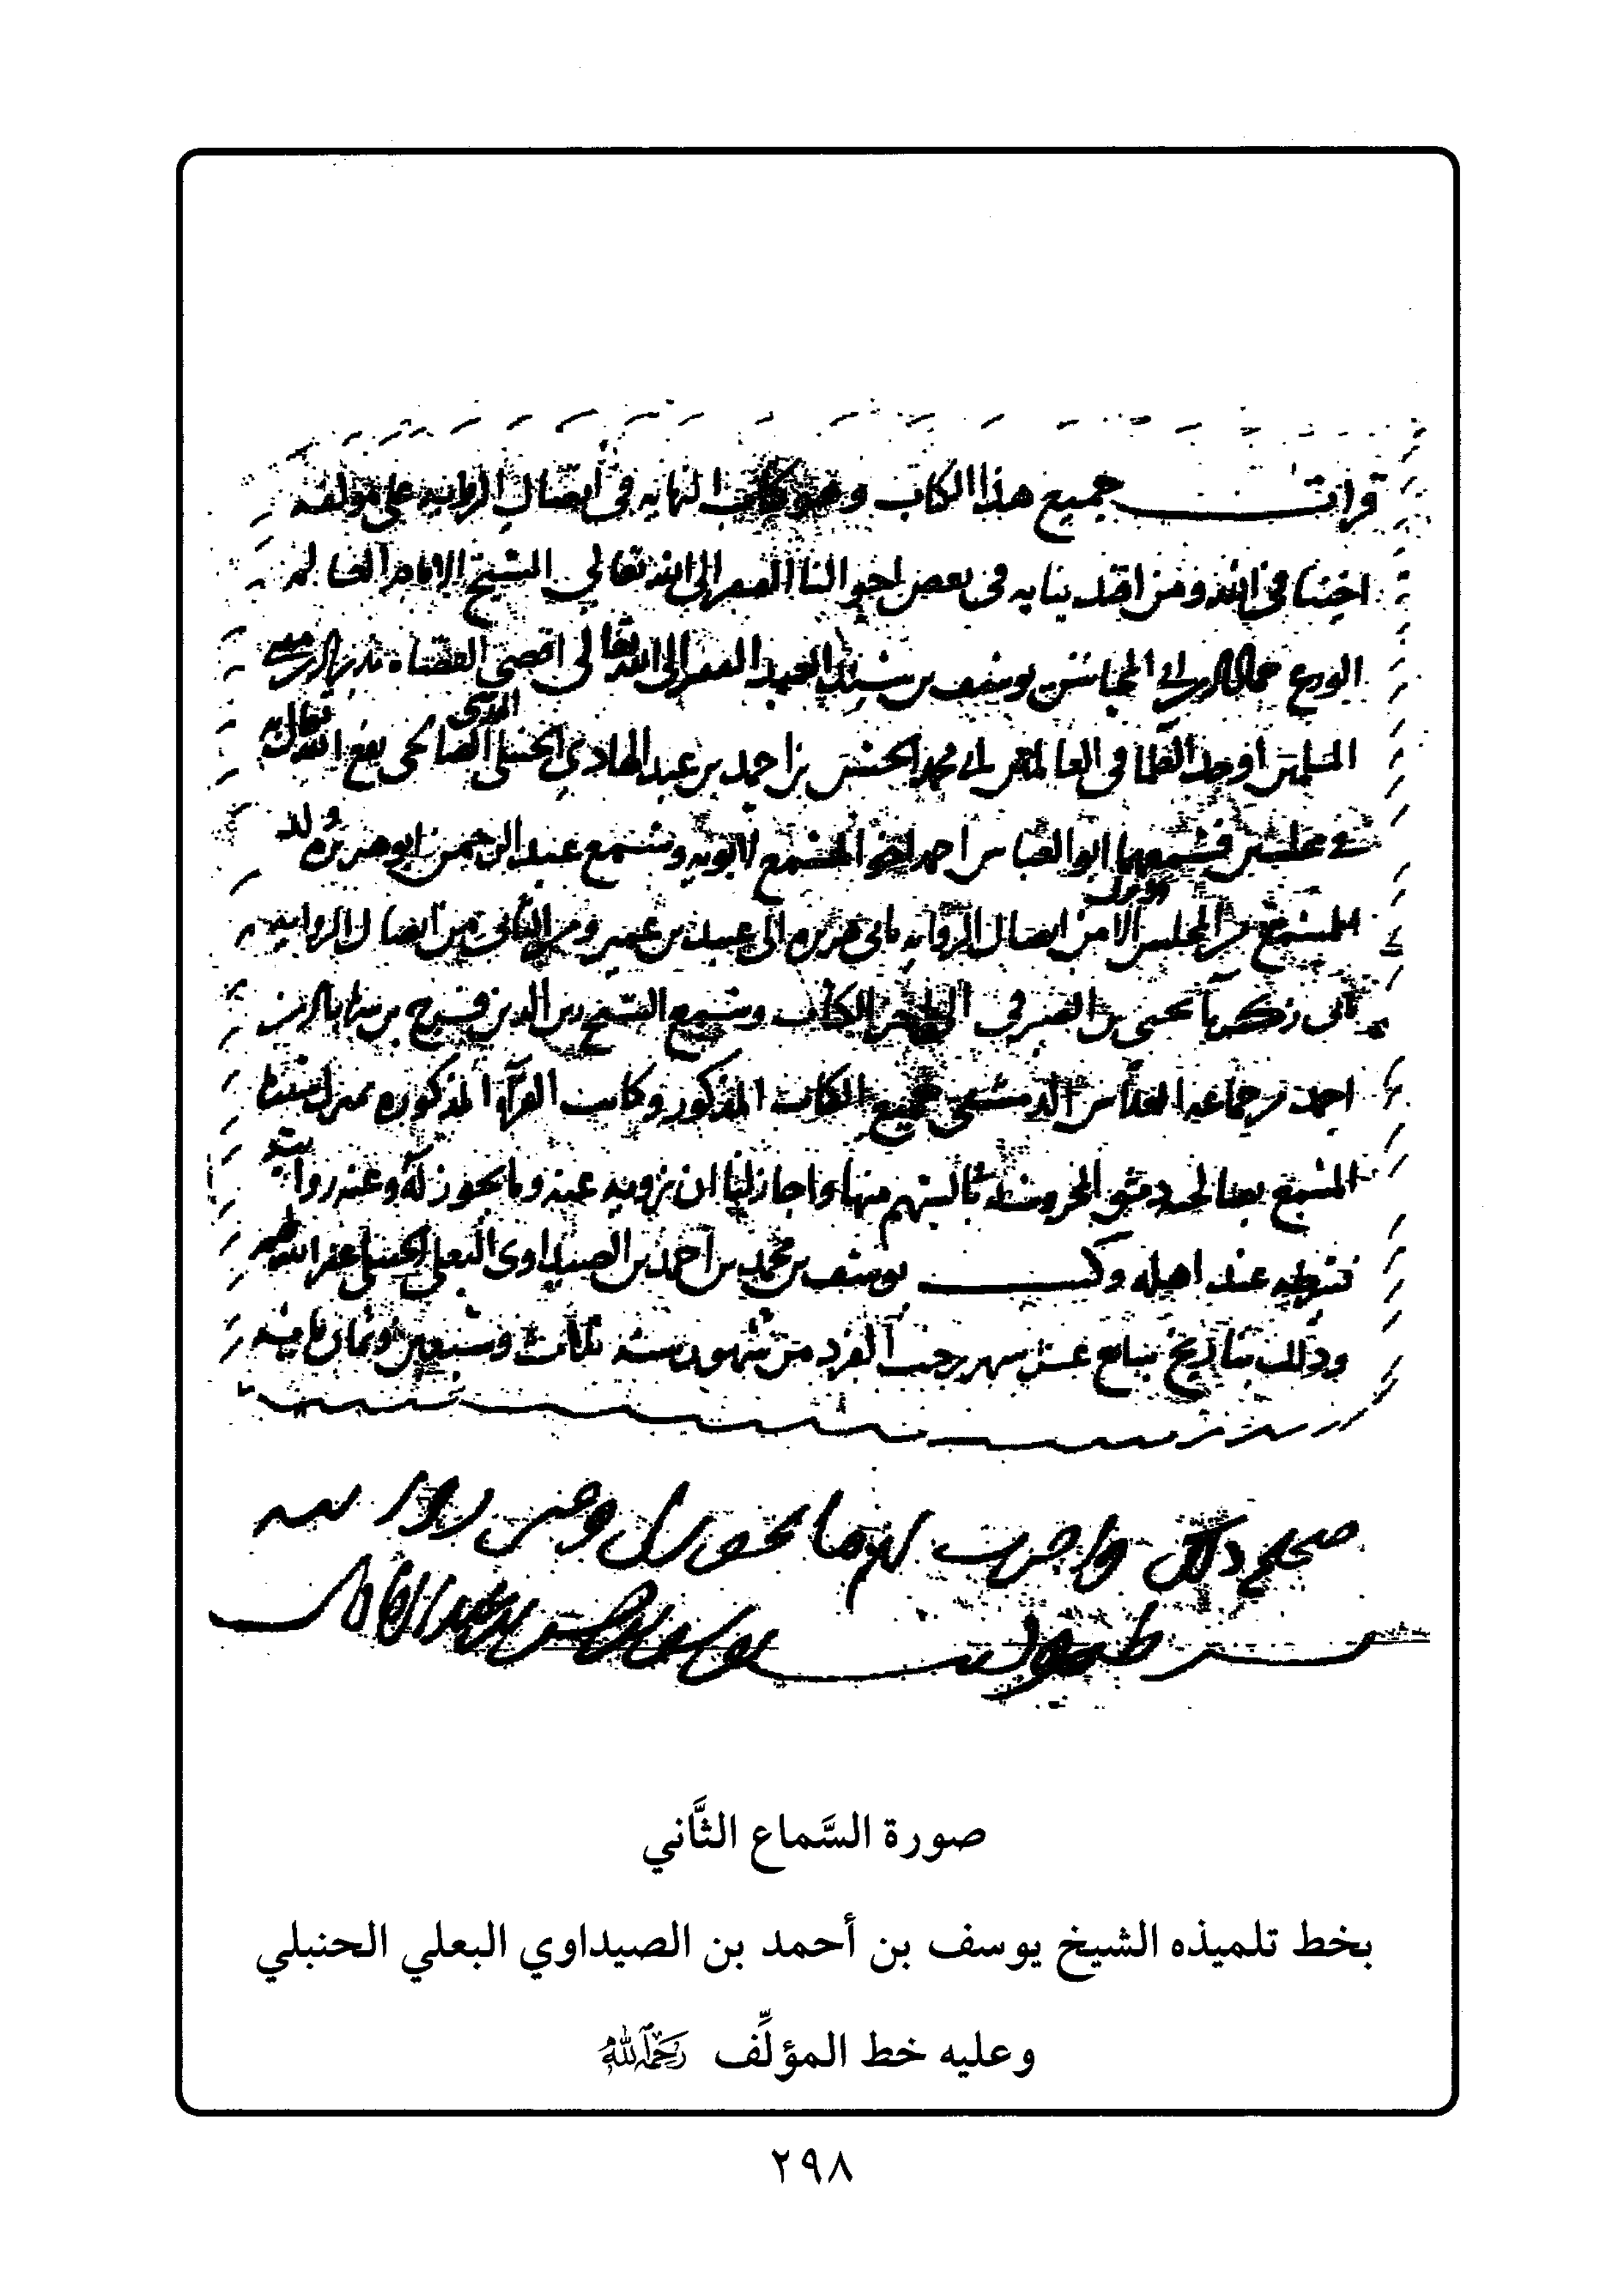 قرات جميع هذا الكتاب وهو كتاب النهايه في اتصال الروايه على مولفه
اخينا في الله ومن اقتدينا به في بعض احوالنا الفقير الى الله تعالى الشيخ الامام العالم
الورع جمال الدين ابي المحاسن يوسف بن سيدنا العبد الفقير الى الله تعالى اقضى القضاه بدر الدين
المسلمين اوحد العلما في العالمين ابي محمد الحسن بن احمد بن عبد الهادي الحنبلي الصالحي نفع الله تعالى به
في مجلسين فسمعهما ابو العباس احمد اخو المسمع لابويه وسمع عبد الرحمن ابو هريره ولد
المسمع من المجلس الاول من اتصال الروايه بابي هريره الى عبيد بن عمير ومن الثاني من اتصال الروايه
بابي زكريا يحيى بن الصيرفي الى اخر الكتاب وسمع الشيخ زين الدين فرج بن
احمد من جماعه الدمشقي جميع الكتاب المذكور وكانت القراه المذكوره بمنزل سيدنا
المسمع بصالحيه دمشق المحروسه بالسهم منها واجاز لنا ان نرويه عنه وما يجوز له وعنه روايته
بشرطه عند اهله وكتب يوسف بن محمد بن احمد بن الصيداوي البعلي الحنبلي عفر الله لهم
وذلك بتاريخ سابع عشر شهر رجب الفرد من شهور سنه ثلاث وستعين وثمان مايه
صحيح ذلك واجزت لهم ما يجوز لي وعني روايته
بشرطه وكتب يوسف بن حسن بن عبد الهادي
صورة السَّماع الثَّاني
بخط تلميذه الشيخ يوسف بن أحمد بن الصيداوي البعلي الحنبلي
وعليه خط المؤلِّف رحمه الله
٢٩٨